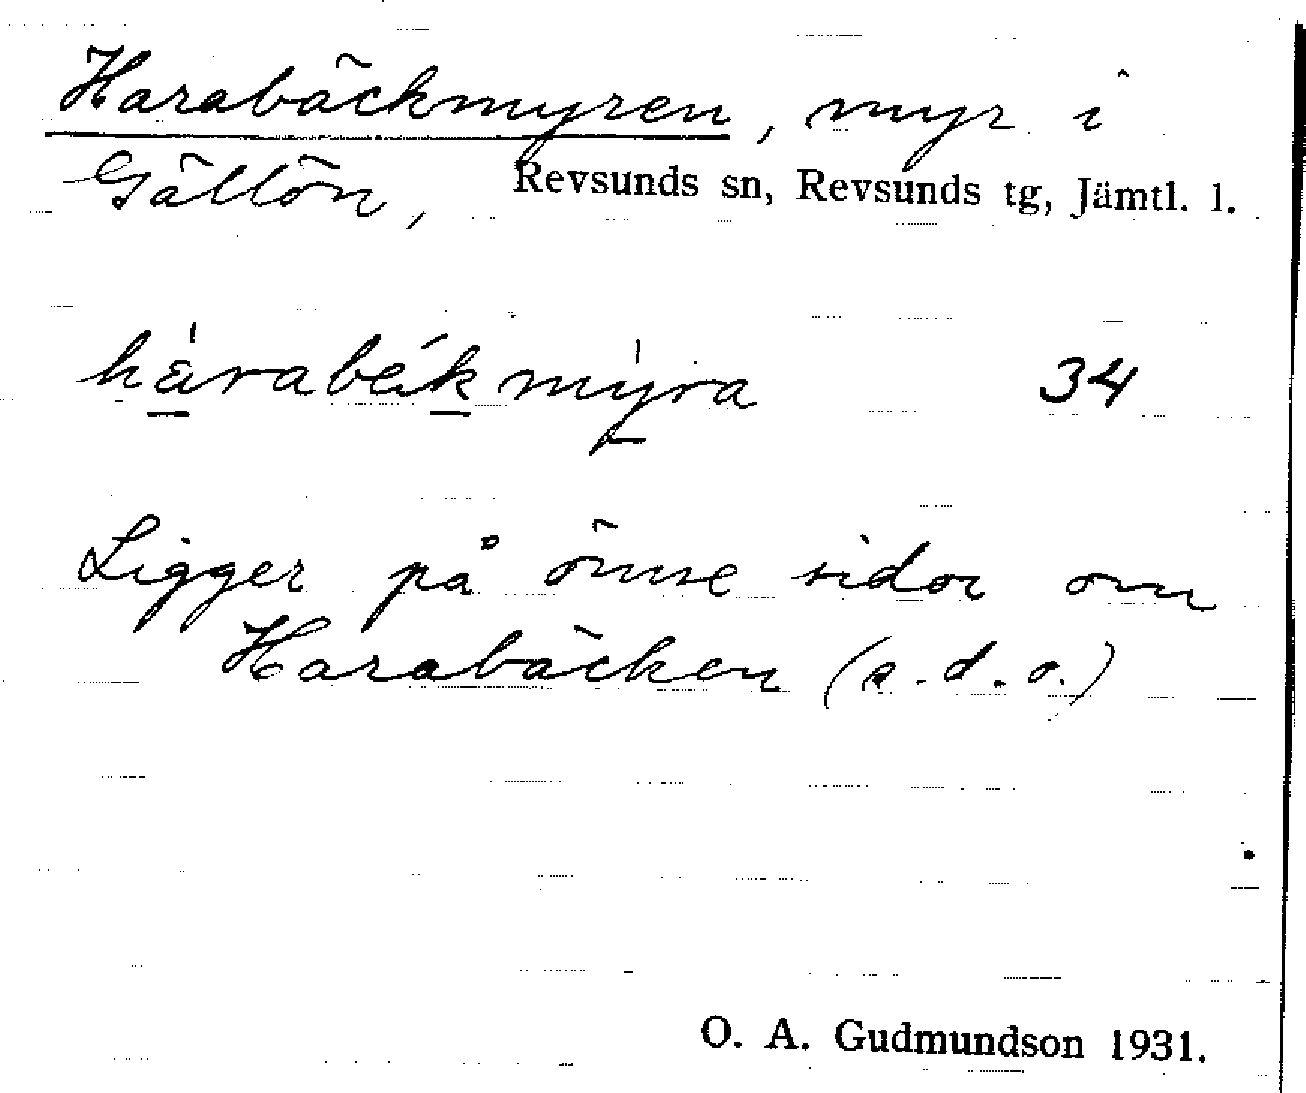 Harabäckmyren, myr i
Gällön, Revsunds sn, Revsunds tg, Jämtl. l.
hàrabäkmỳra 34
Ligger på ömse sidor om
Harabäcken (s.d.o.)
O. A. Gudmundson 1931.